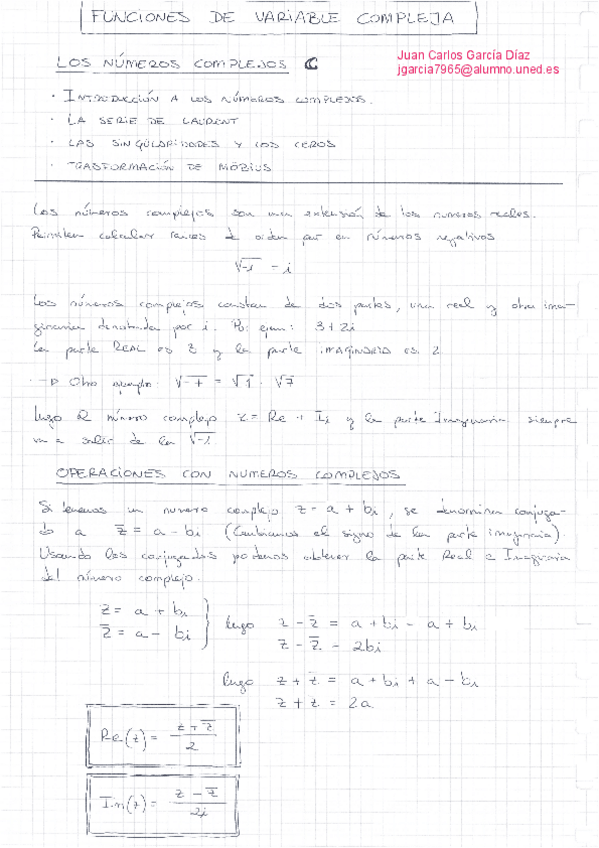 FUNCIONES DE VARIABLE COMPLEJA
LOS NÚMEROS COMPLEJOS C
Juan Carlos García Díaz
jgarcia7965@alumno.uned.es
· INTRODUCCIÓN A LOS NÚMEROS COMPLEJOS.
· LA SERIE DE LAURENT
· LAS SINGULARIDADES Y LOS CEROS
· TRASFORMACIÓN DE MÖBIUS
Los números complejos son una extensión de los numeros reales.
Permiten calcular raices de orden par en números negativos
√-1 = i
Los números complejos constan de dos partes, una real y otra ima-
ginaria denotada por i. Por ejem: 3+2i
La parte REAL es 3 y la parte IMAGINARIA es 2
Otro ejemplo: √-7 = √-1 · √7
luego el número complejo z = Re + Ii y la parte Imaginaria siempre
va a salir de la √-1
OPERACIONES CON NUMEROS COMPLEJOS
Si tenemos un numero complejo z = a + bi, se denomina conjuga-
do a z̅ = a - bi (Cambiamos el signo de la parte imaginaria).
Usando los conjugados podemos obtener la parte Real e Imaginaria
del número complejo.
z = a + bi
z̅ = a - bi
luego z - z̅ = a + bi - a + bi
z - z̅ = 2bi
luego z + z̅ = a + bi + a - bi
z + z̅ = 2a
Re(z) = (z + z̅)/2
Im(z) = (z - z̅)/2i